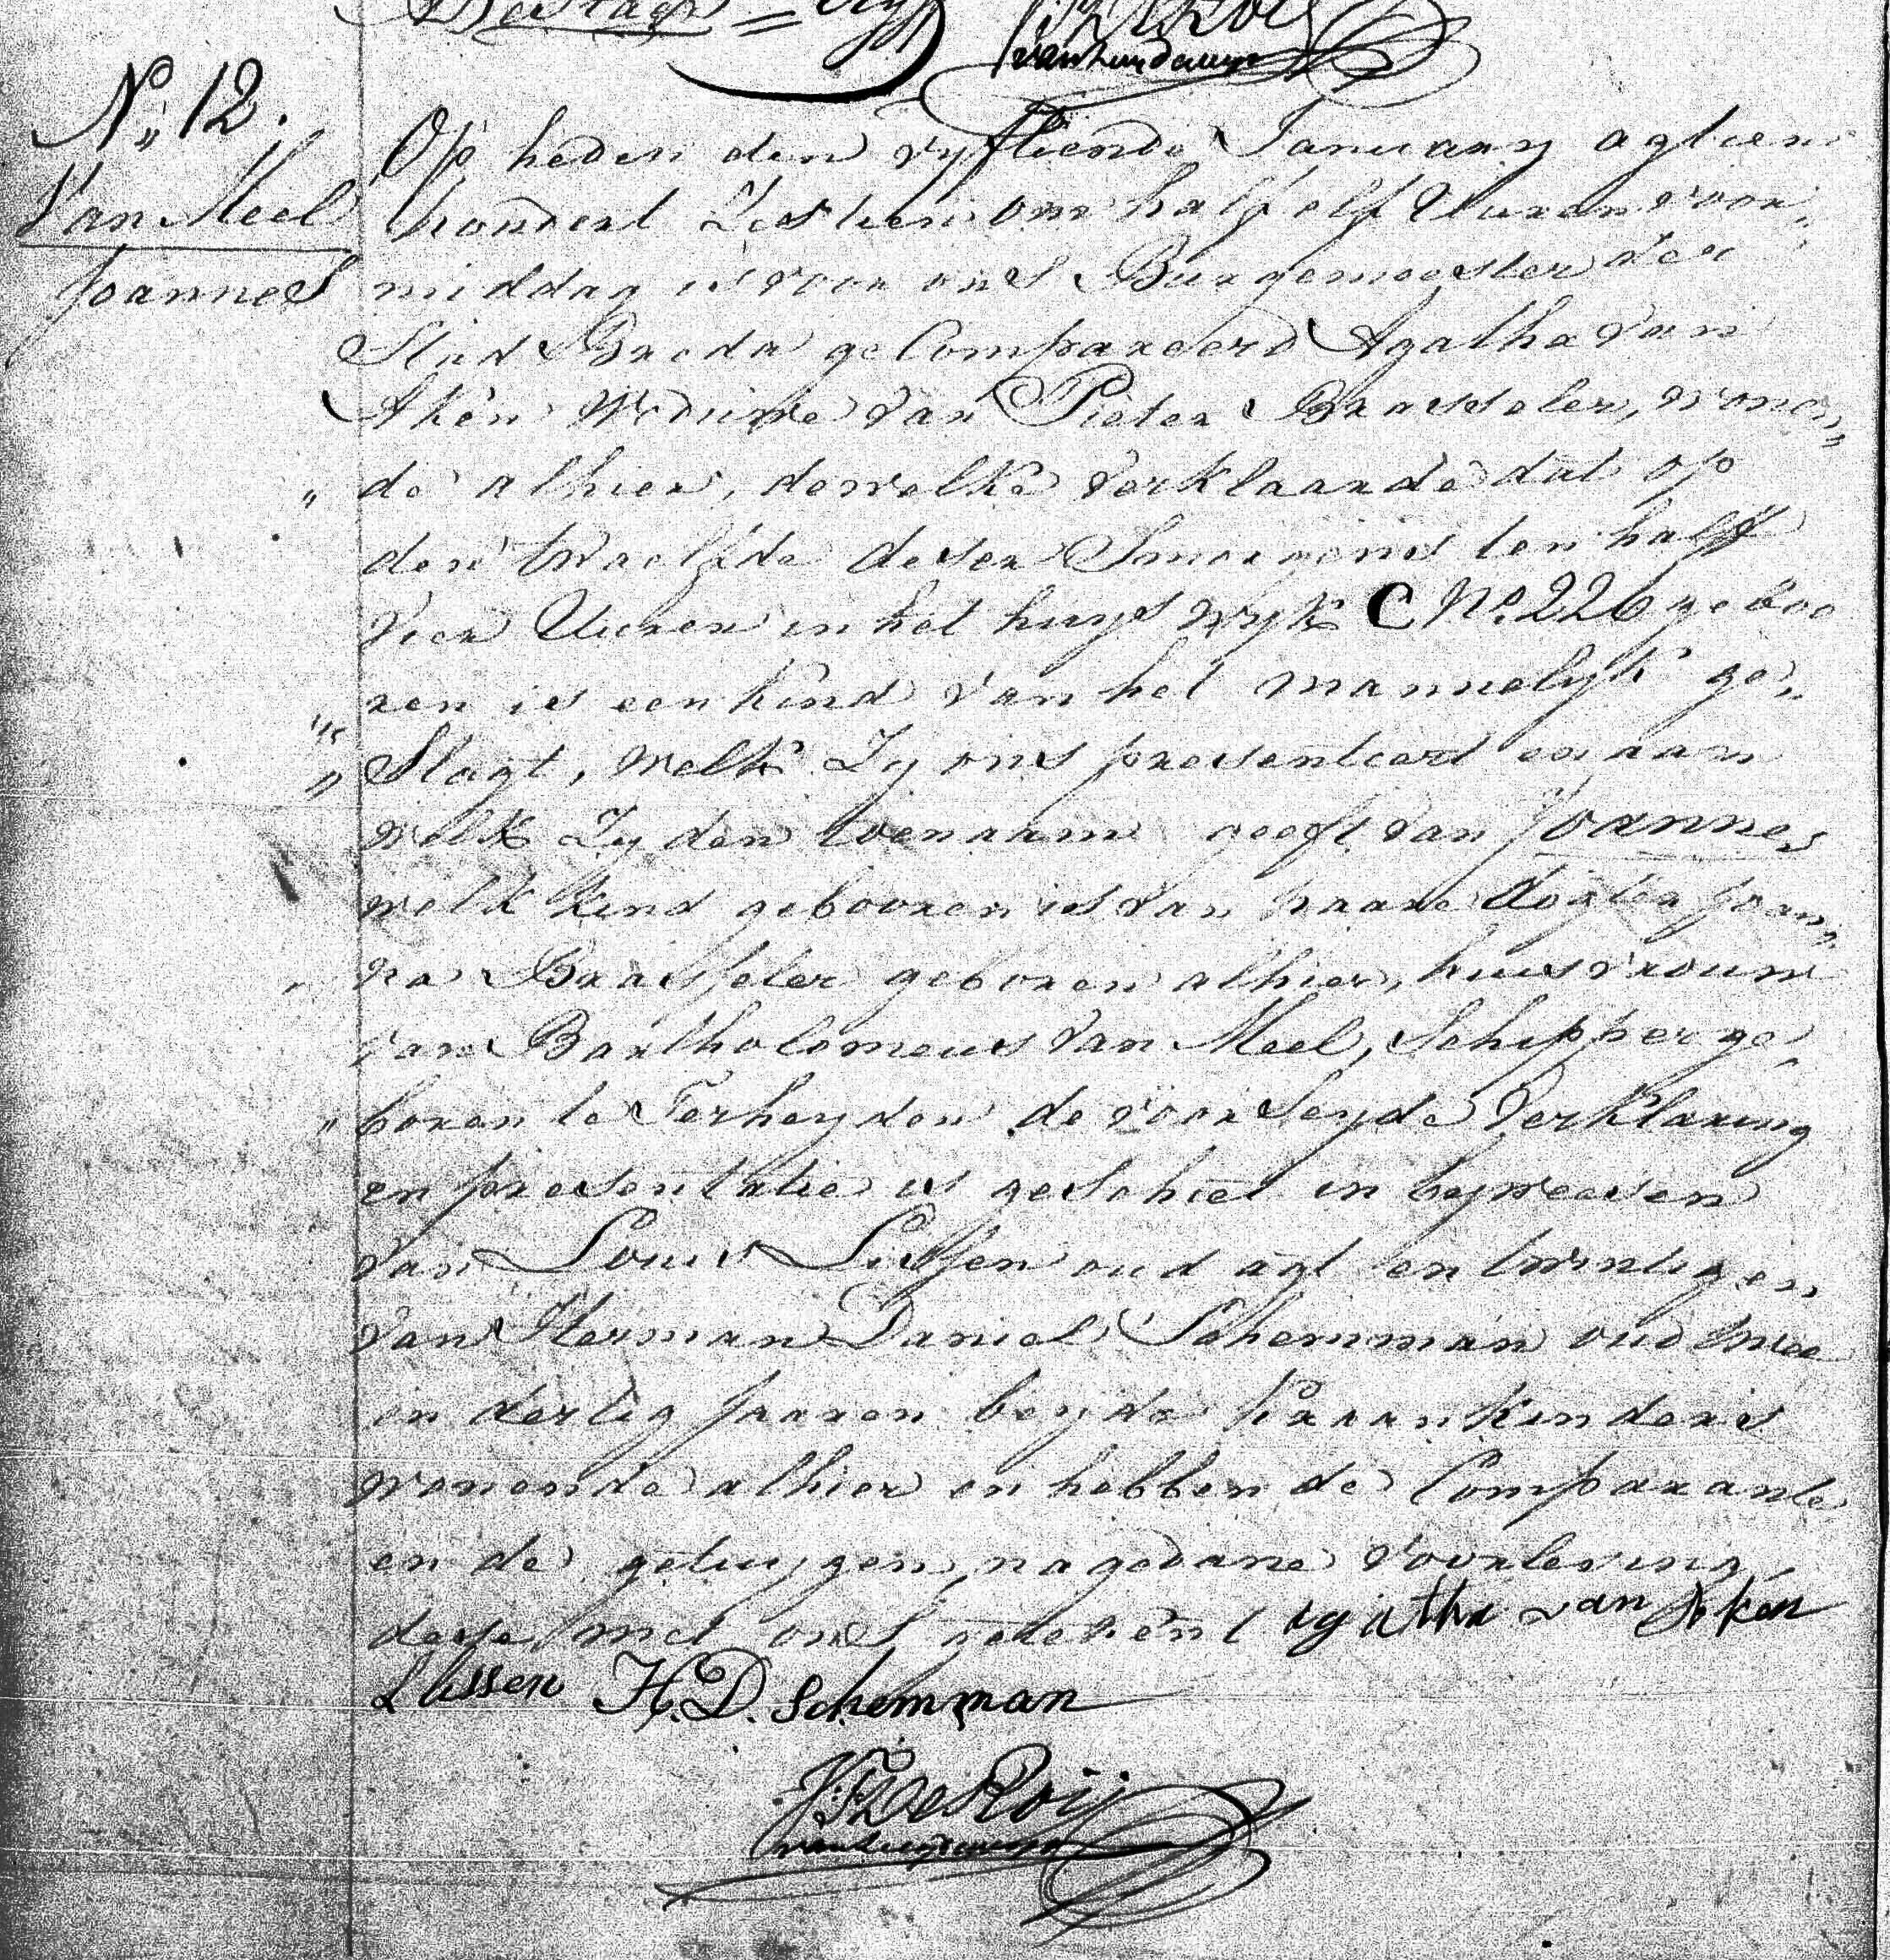 N„ 12.
Van Meel
Joannes
Op heden den vyftiende January agtien
hondert Zestien om half elf Uuren voor„
middag is voor ons Burgemeester der
Stad Breda geCompareerd Agatha van
Aken Weduwe van Pieter Brasseler, wonen„
„ de alhier, dewelke verklaarde dat op
den twaelfde deser Smorgens ten half
vier Uuren in het huys wyk C No. 226 geboo
ren is een kind van het mannelyk ge„
„ Slagt, welk Zy ons presenteert en aan
welk Zy den voornaam geeft van Joannes
welk kind gebooren is van haare dogter Joan„
na Brasseler geboren alhier, huisvrouw
van Bartholomeus van Meel, Schipper ge„
„ boren te Terheyden de voorseyde Verklaring
en presentatie is geschiet in byweesen
van Louis Lussen oud agt en twintig en
van Herman Daniel Schemman oud twee
en dertig Jaaren beyde kraankinders
wonende alhier en hebben de Comparante
en de getuygen na gedane voorlesing
dese met ons getekent Agatha van Aken
L lussen H.D. Schemman